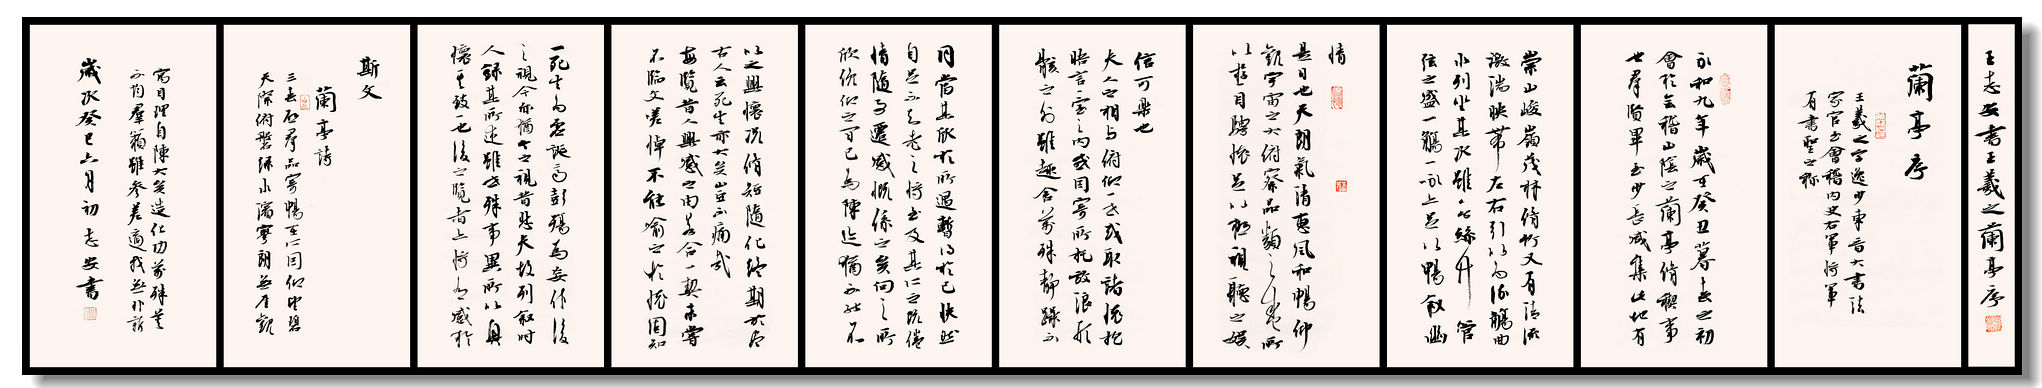 王志安書王羲之蘭亭序
蘭亭序
王羲之字逸少東晉大書法
家官至會稽內史右軍將軍
有書聖之稱
永和九年歲在癸丑暮春之初
會於會稽山陰之蘭亭脩禊事
也群賢畢至少長咸集此地有
崇山峻嶺茂林脩竹又有清流
激湍映帶左右引以為流觴曲
水列坐其次雖無絲竹管
弦之盛一觴一詠亦足以暢敘幽
情
是日也天朗氣清惠風和暢仰
觀宇宙之大俯察品類之盛所
以遊目騁懷足以極視聽之娛
信可樂也
夫人之相與俯仰一世或取諸懷抱
悟言一室之內或因寄所託放浪形
骸之外雖趣舍萬殊靜躁不
同當其欣於所遇暫得於己快然
自足不知老之將至及其所之既倦
情隨事遷感慨係之矣向之所
欣俛仰之間已為陳迹猶不能不
以之興懷況脩短隨化終期於盡
古人云死生亦大矣豈不痛哉
每覽昔人興感之由若合一契未嘗
不臨文嗟悼不能喻之於懷固知
一死生為虛誕齊彭殤為妄作後
之視今亦猶今之視昔悲夫故列敘時
人錄其所述雖世殊事異所以興
懷其致一也後之覽者亦將有感於
斯文
蘭亭詩
三春启群品寄暢在所因仰望碧
天際俯磐綠水濱寥朗無厓觀
寓目理自陳大矣造化功萬殊莫
不均群籟雖參差適我無非新
歲次癸巳六月初志安書